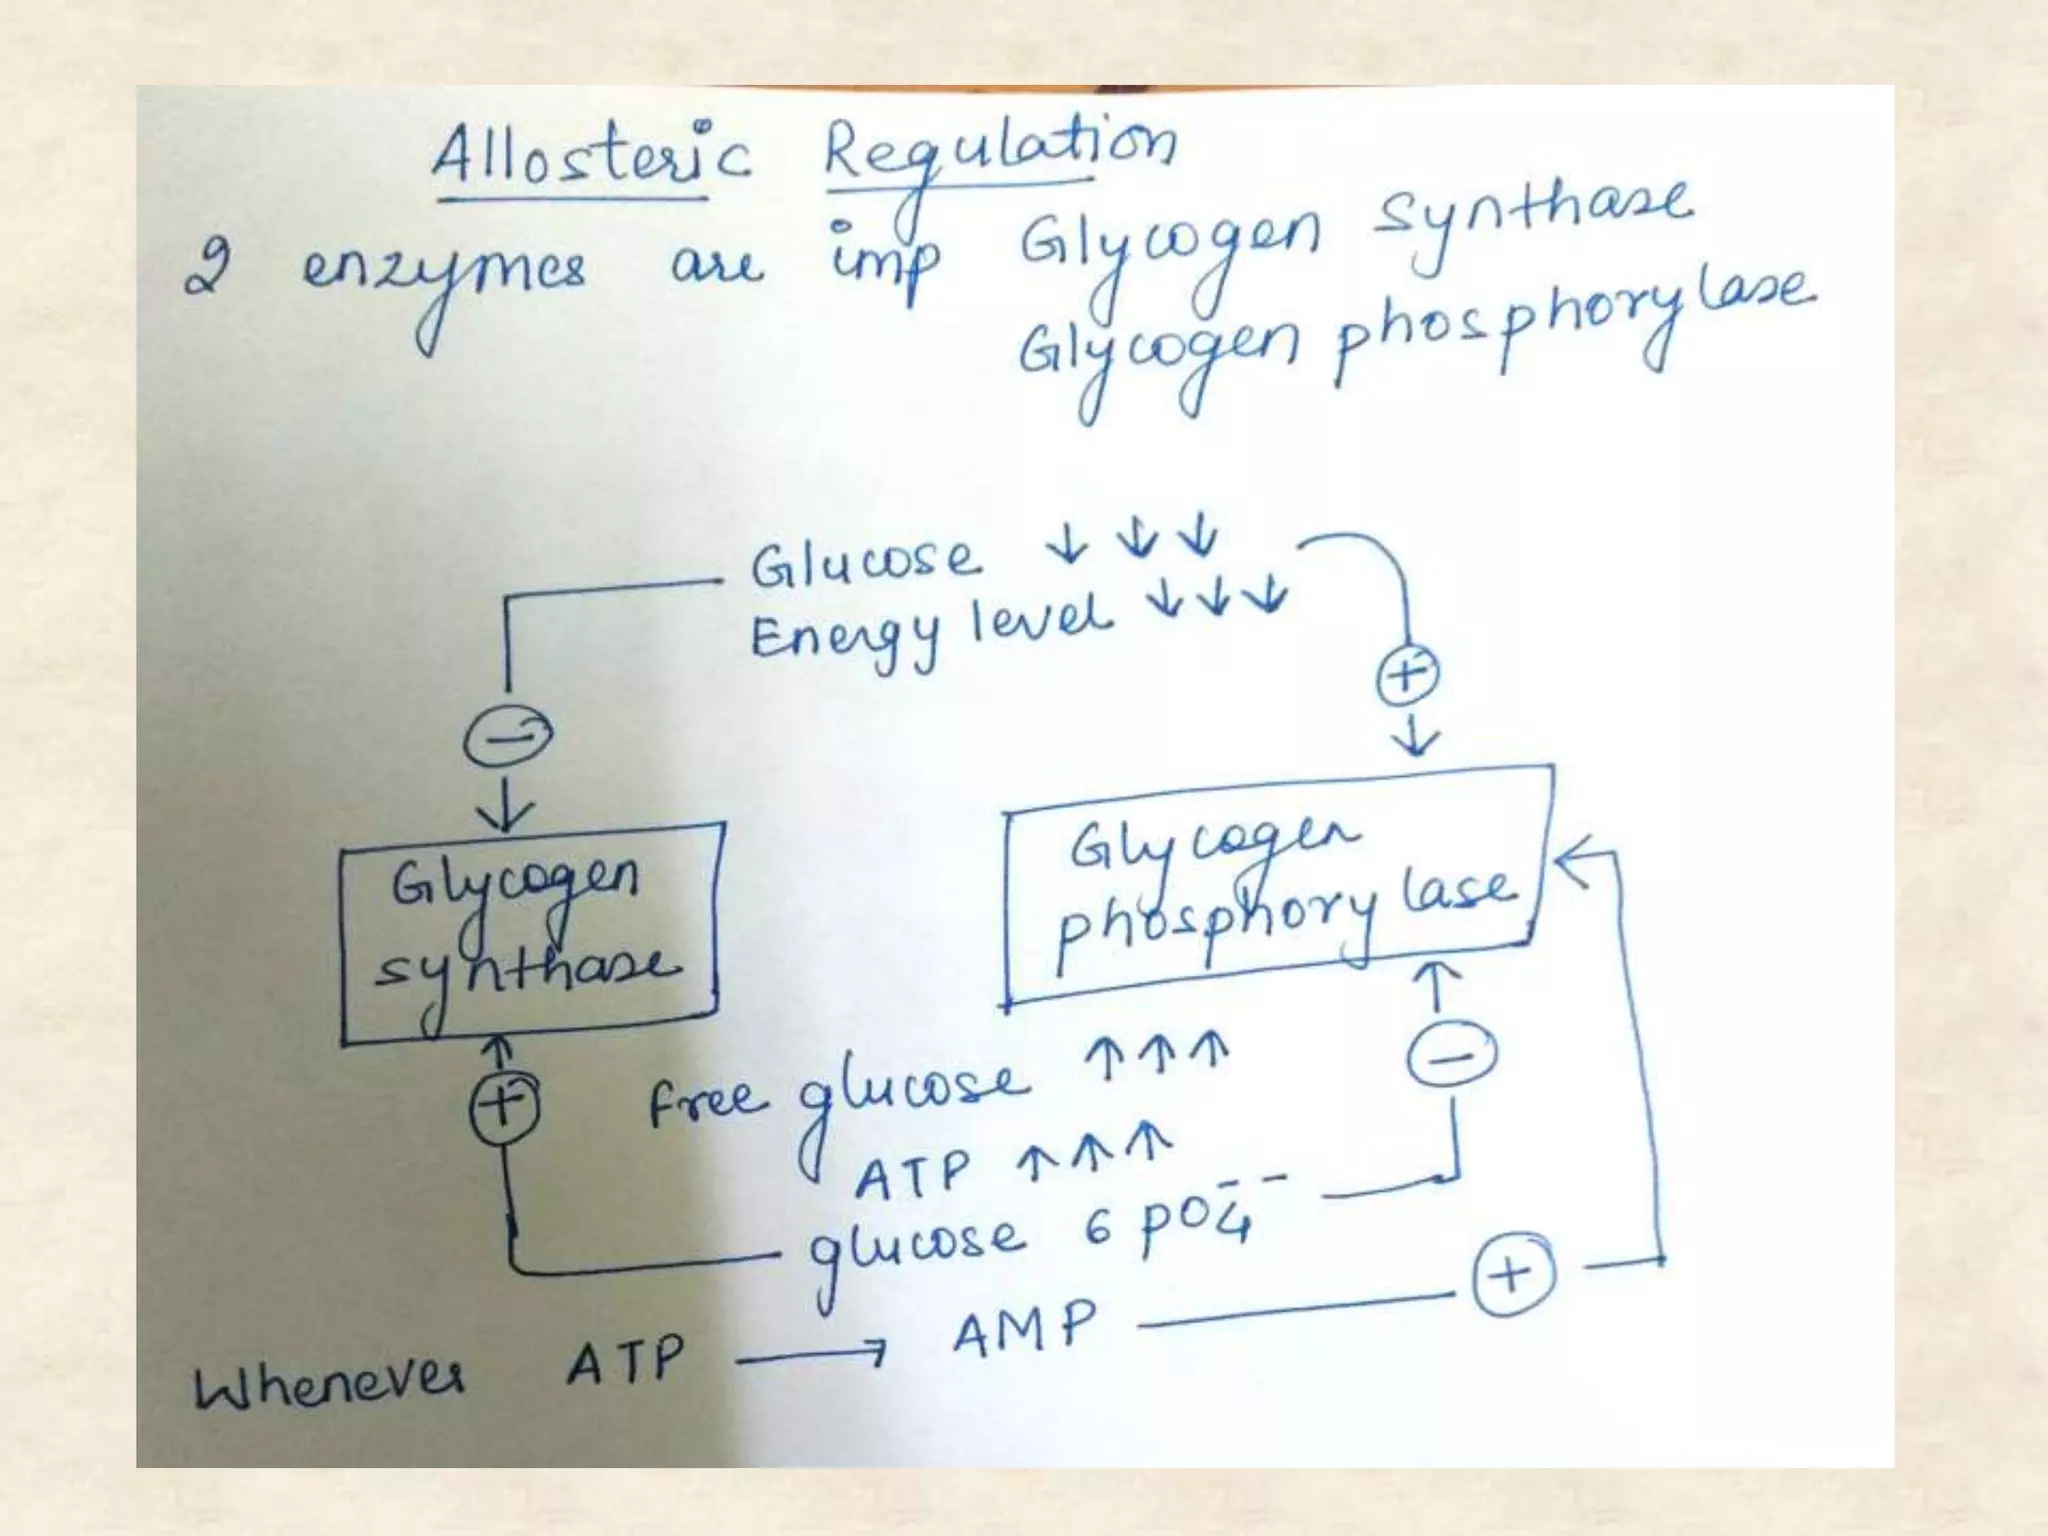 Allosteric Regulation
2 enzymes are imp Glycogen synthase
Glycogen phosphorylase
Glucose ↓ ↓ ↓
Energy level ↓ ↓ ↓
−
+
Glycogen
synthase
Glycogen
phosphorylase
+
Free glucose ↑ ↑ ↑
−
ATP ↑ ↑ ↑
glucose 6 PO4−−
Whenever ATP → AMP
+